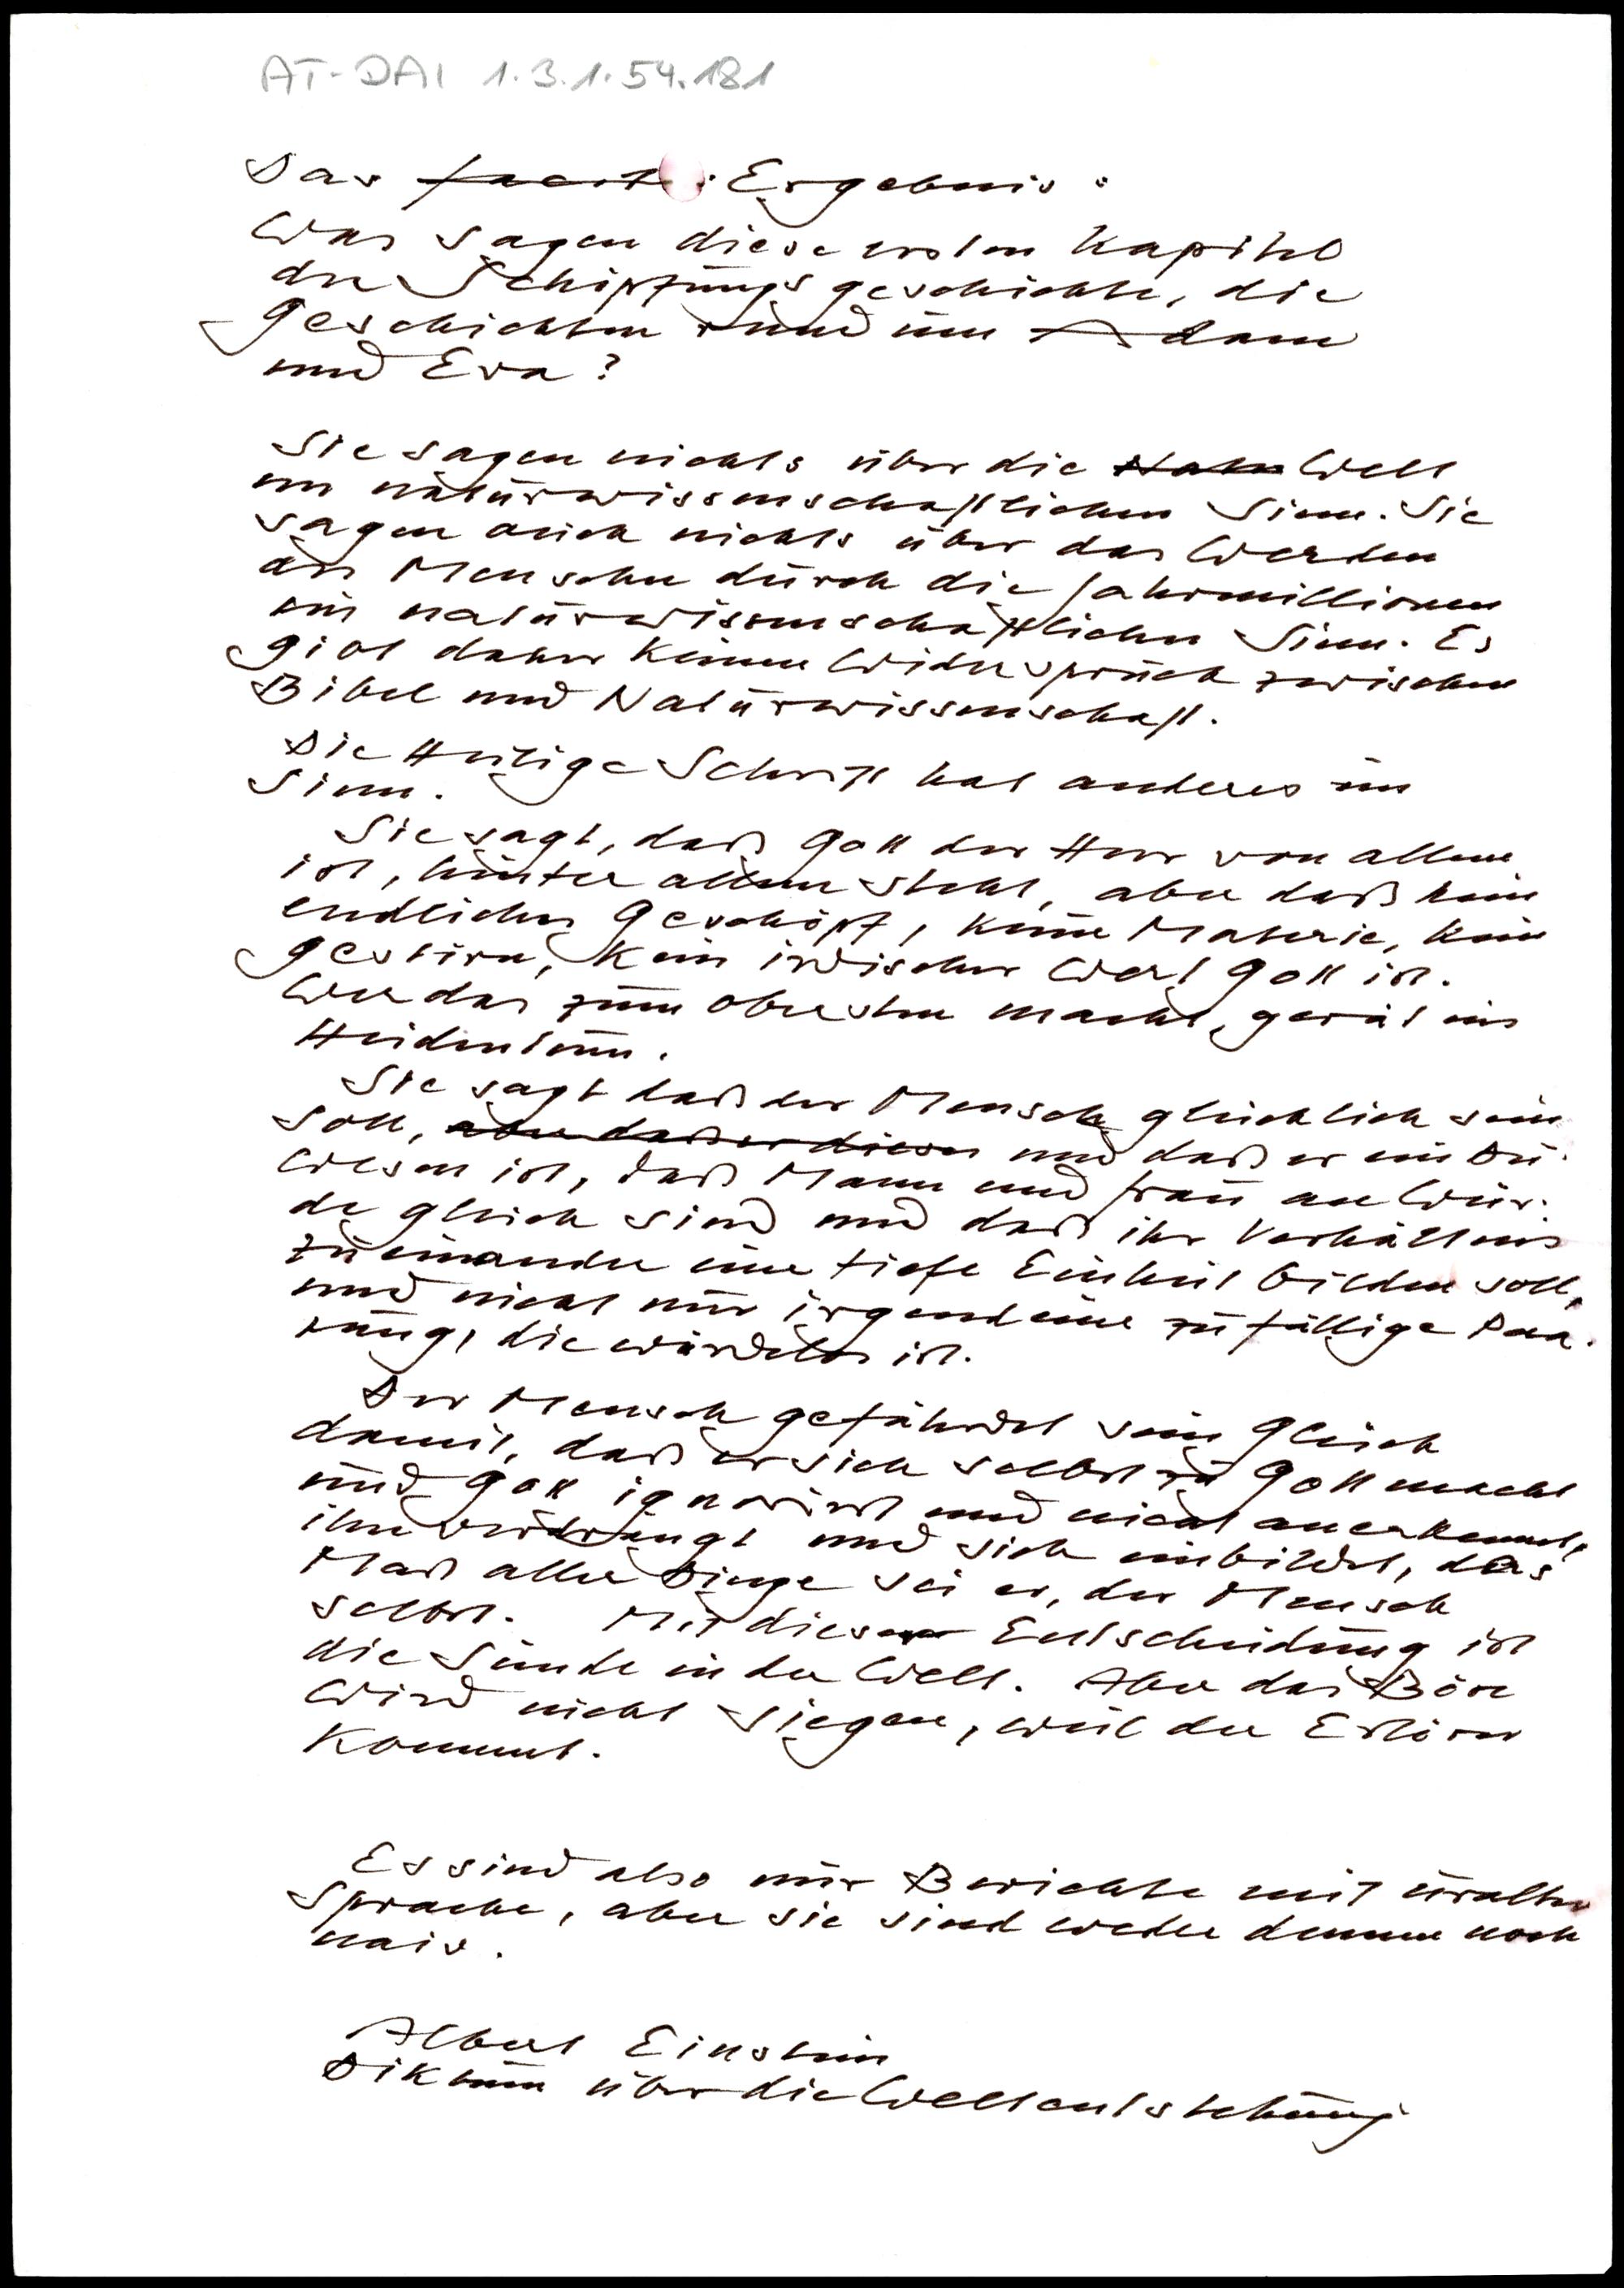 AT-DAI 1.3.1.54.181
Das Facit: Ergebnis:
Was sagen diese ersten Kapitel
der Schöpfungsgeschichte, die
Geschichten rund um Adam
und Eva?
Sie sagen nichts über die Welt
im naturwissenschaftlichen Sinn. Sie
sagen auch nichts über das Werden
des Menschen durch die Jahrmillionen
im naturwissenschaftlichen Sinn. Es
gibt daher keinen Widerspruch zwischen
Bibel und Naturwissenschaft.
Die Heilige Schrift hat anderes im
Sinn.
Sie sagt, daß Gott der Herr von allem
ist, hinter allem steht, aber daß kein
endliches Geschöpf, keine Materie, kein
Gestirn, kein irdischer Wert Gott ist.
Wer das zum obersten macht, gerät ins
Heidentum.
Sie sagt daß der Mensch glücklich sein
soll, aber daß er diesen und daß er ein Du-
Wesen ist, daß Mann und Frau an Wür-
de gleich sind und daß ihr Verhältnis
zueinander eine tiefe Einheit bilden soll,
und nicht nur irgendeine zufällige Paa-
rung, die würdelos ist.
Der Mensch gefährdet sein Glück
damit, daß er sich selbst zu Gott macht
und Gott ignoriert und nicht anerkennt,
ihn verdrängt und sich einbildet, das
Maß aller Dinge sei er, der Mensch
selbst. Mit dieser Entscheidung ist
die Sünde in der Welt. Aber das Böse
wird nicht siegen, weil der Erlöser
kommt.
Es sind also nur Berichte mit uralter
Sprache, aber sie sind weder dumm noch
naiv.
Albert Einstein
Diktum über die Weltentstehung